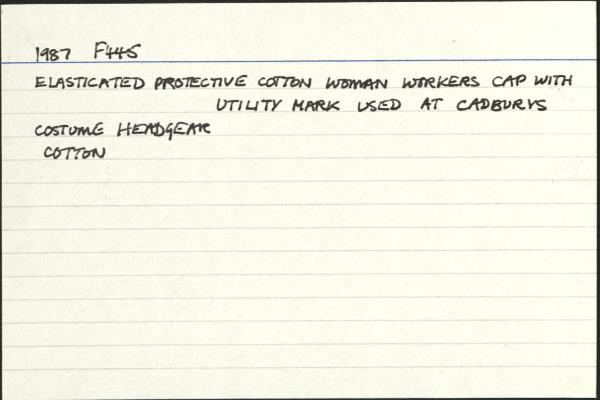 1987 F445
ELASTICATED PROTECTIVE COTTON WOMAN WORKERS CAP WITH
UTILITY MARK USED AT CADBURYS
COSTUME HEADGEAR
COTTON